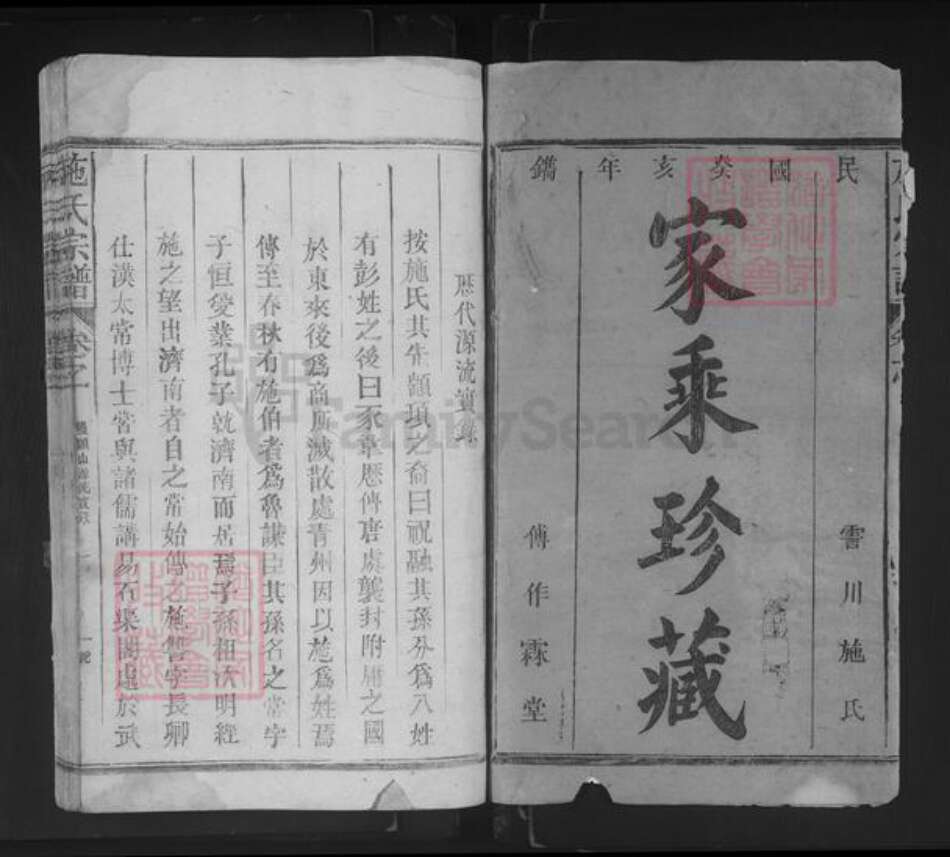 民國癸亥年鐫
霅川施氏
家乘珍藏
傅作霖堂
歷代源流實錄
按施氏其先顓頊之裔曰祝融其孫分爲八姓
有彭姓之後曰豕韋歷傳唐虞襲封附庸之國
於東來後爲商所滅散處青州因以施爲姓焉
傳至春秋有施伯者爲魯謀臣其孫名之常字
子恒受業孔子就濟南而居焉子孫相次明經
施之望出濟南者自之常始傳之施讐字長卿
仕漢太常博士嘗與諸儒講易石渠閣遞於武
施氏宗譜
卷之一
FamilySearch